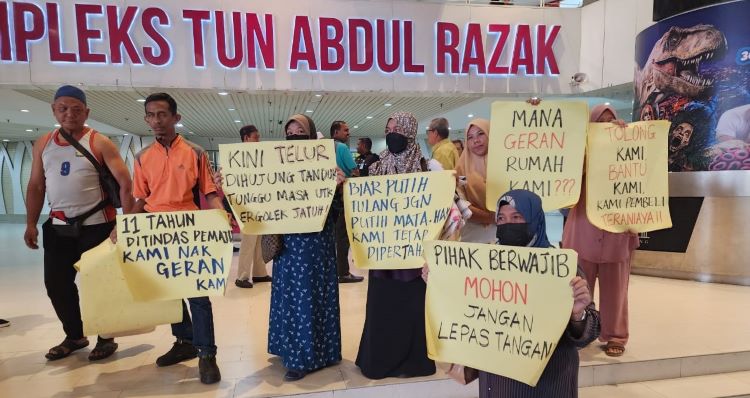 MPLEKS TUN ABDUL RAZAK
11 TAHUN
DITINDAS PEMAJU
KAMI NAK
GERAN
KAMI
KINI TELUR
DIHUJUNG TANDUK
TUNGGU MASA UTK
ERGOLEK JATUH!
BIAR PUTIH
TULANG JGN
PUTIH MATA.
KAMI TETAP
DIPERTAH
MANA
GERAN
RUMAH
KAMI???
TOLONG
KAMI
BANTU
KAMI.
KAMI PEMBELI
TERANIAYA!!
PIHAK BERWAJIB
MOHON
JANGAN
LEPAS TANGAN
9